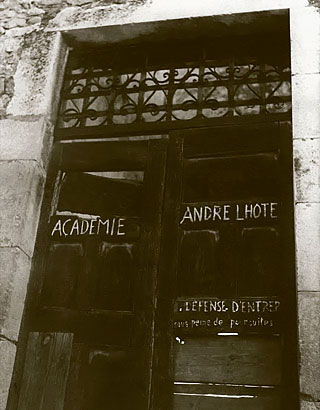 ACADÉMIE
ANDRE LHOTE
DÉFENSE D'ENTRER
sous peine de poursuites